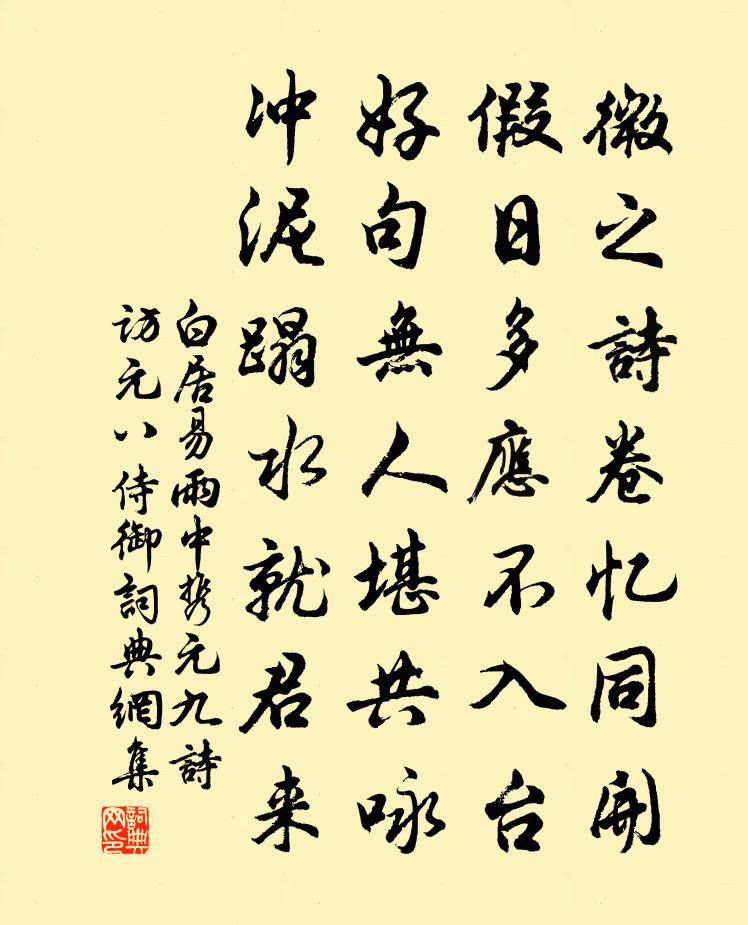 微之詩卷忆同開
假日多應不入台
好句無人堪共咏
冲泥蹋水就君来
白居易雨中携元九詩
訪元八侍御詞典網集
詞典网印